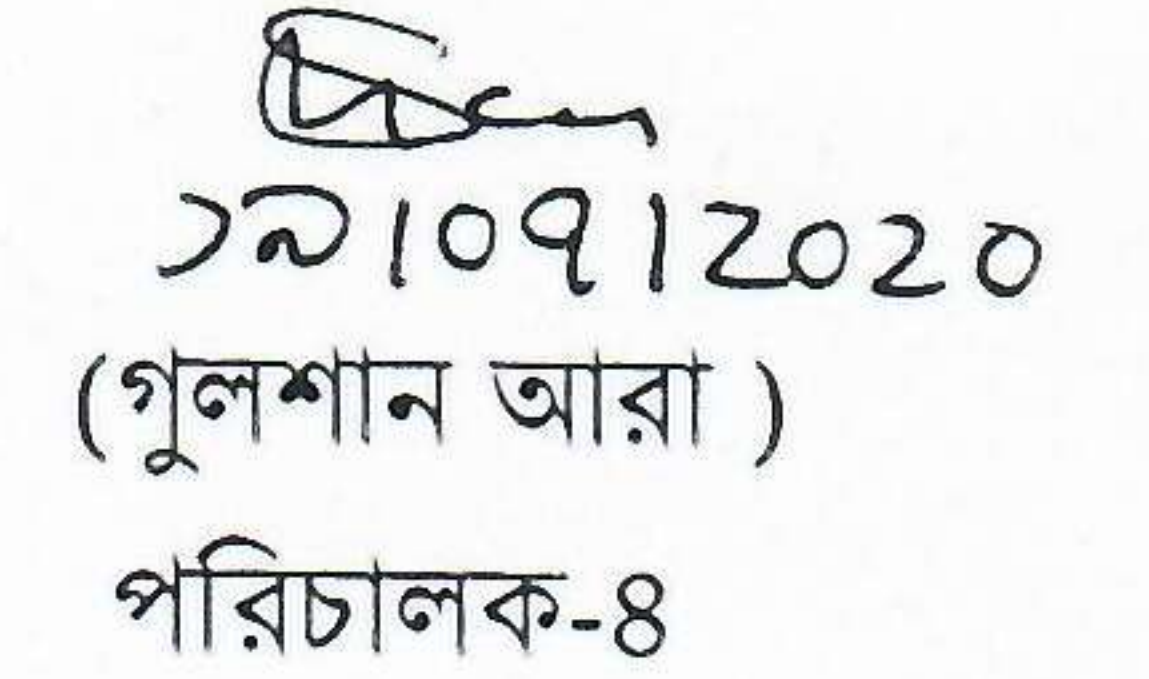 ১৯/০৭/২০২০
(গুলশান আরা )
পরিচালক-৪